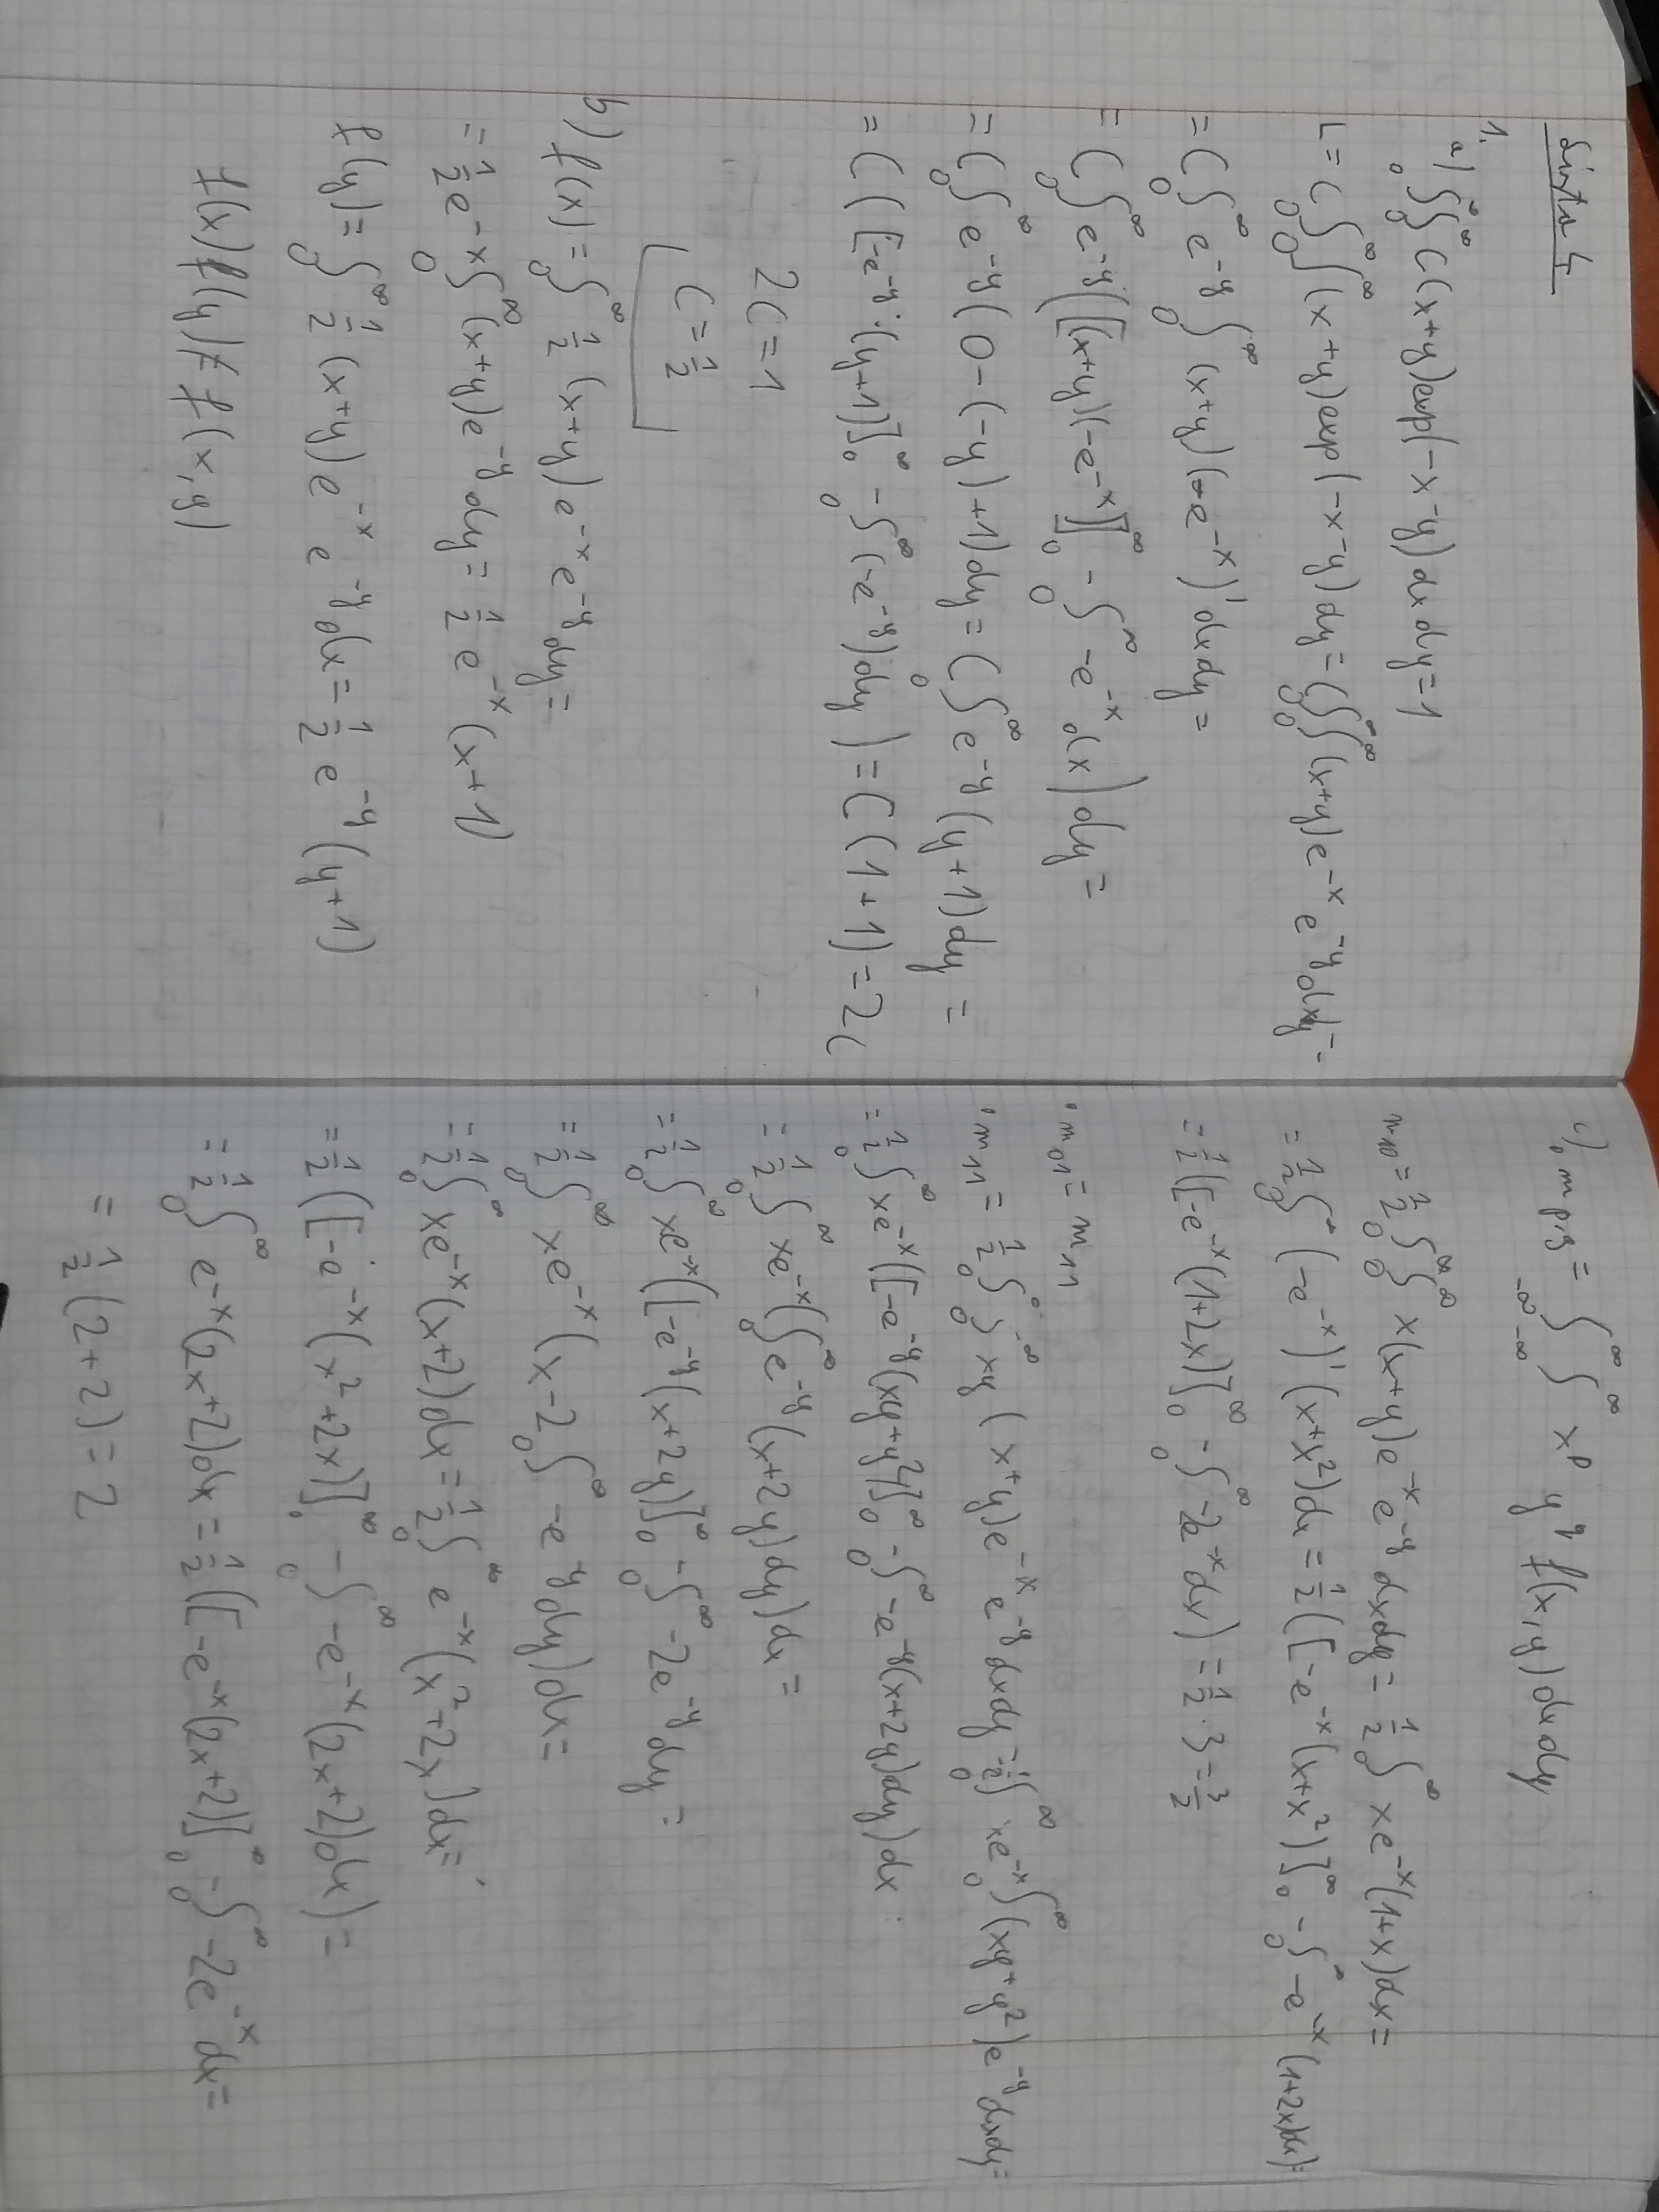 Lista 4
1.
a) ∫₀^∞ ∫₀^∞ C(x+y)exp(-x-y)dxdy=1
L = C∫₀^∞ ∫₀^∞ (x+y)exp(-x-y)dy = C∫₀^∞ ∫₀^∞ (x+y)e^{-x} e^{-y} dxdy =
= C∫₀^∞ e^{-y} ∫₀^∞ (x+y)(-e^{-x})' dxdy =
= C∫₀^∞ e^{-y}([(x+y)(-e^{-x})]₀^∞ - ∫₀^∞ -e^{-x}dx)dy =
= C∫₀^∞ e^{-y}(0-(-y)+1)dy = C∫₀^∞ e^{-y}(y+1)dy =
= C([-e^{-y}·(y+1)]₀^∞ - ∫₀^∞ (-e^{-y})dy) = C(1+1) = 2C
2C = 1
C = 1/2
b) f(x) = ∫₀^∞ 1/2 (x+y)e^{-x}e^{-y}dy =
= 1/2 e^{-x} ∫₀^∞ (x+y)e^{-y}dy = 1/2 e^{-x}(x+1)
f(y) = ∫₀^∞ 1/2 (x+y)e^{-x} e^{-y}dx = 1/2 e^{-y}(y+1)
f(x)f(y) ≠ f(x,y)
c) • m_{p,q} = ∫_{-∞}^∞ ∫_{-∞}^∞ x^p y^q f(x,y)dxdy
m₁₀ = 1/2 ∫₀^∞ ∫₀^∞ x(x+y)e^{-x}e^{-y} dxdy = 1/2 ∫₀^∞ xe^{-x}(1+x)dx =
= 1/2 ∫₀^∞ (-e^{-x})'(x+x²)dx = 1/2([-e^{-x}(x+x²)]₀^∞ - ∫₀^∞ -e^{-x}(1+2x)dx) =
= 1/2([-e^{-x}(1+2x)]₀^∞ - ∫₀^∞ -2e^{-x}dx) = 1/2 · 3 = 3/2
• m₀₁ = m₁₁
• m₁₁ = 1/2 ∫₀^∞ ∫₀^∞ xy(x+y)e^{-x}e^{-y}dxdy = 1/2 ∫₀^∞ xe^{-x} ∫₀^∞ (xy+y²)e^{-y}dxdy =
= 1/2 ∫₀^∞ xe^{-x}([-e^{-y}(xy+y²)]₀^∞ - ∫₀^∞ -e^{-y}(x+2y)dy)dx :
= 1/2 ∫₀^∞ xe^{-x}(∫₀^∞ e^{-y}(x+2y)dy)dx =
= 1/2 ∫₀^∞ xe^{-x}([-e^{-y}(x+2y)]₀^∞ - ∫₀^∞ -2e^{-y}dy =
= 1/2 ∫₀^∞ xe^{-x}(x-2∫₀^∞ -e^{-y}dy)dx =
= 1/2 ∫₀^∞ xe^{-x}(x+2)dx = 1/2 ∫₀^∞ e^{-x}(x²+2x)dx =
= 1/2([-e^{-x}(x²+2x)]₀^∞ - ∫₀^∞ -e^{-x}(2x+2)dx) =
= 1/2 ∫₀^∞ e^{-x}(2x+2)dx = 1/2([-e^{-x}(2x+2)]₀^∞ - ∫₀^∞ -2e^{-x}dx =
= 1/2(2+2) = 2